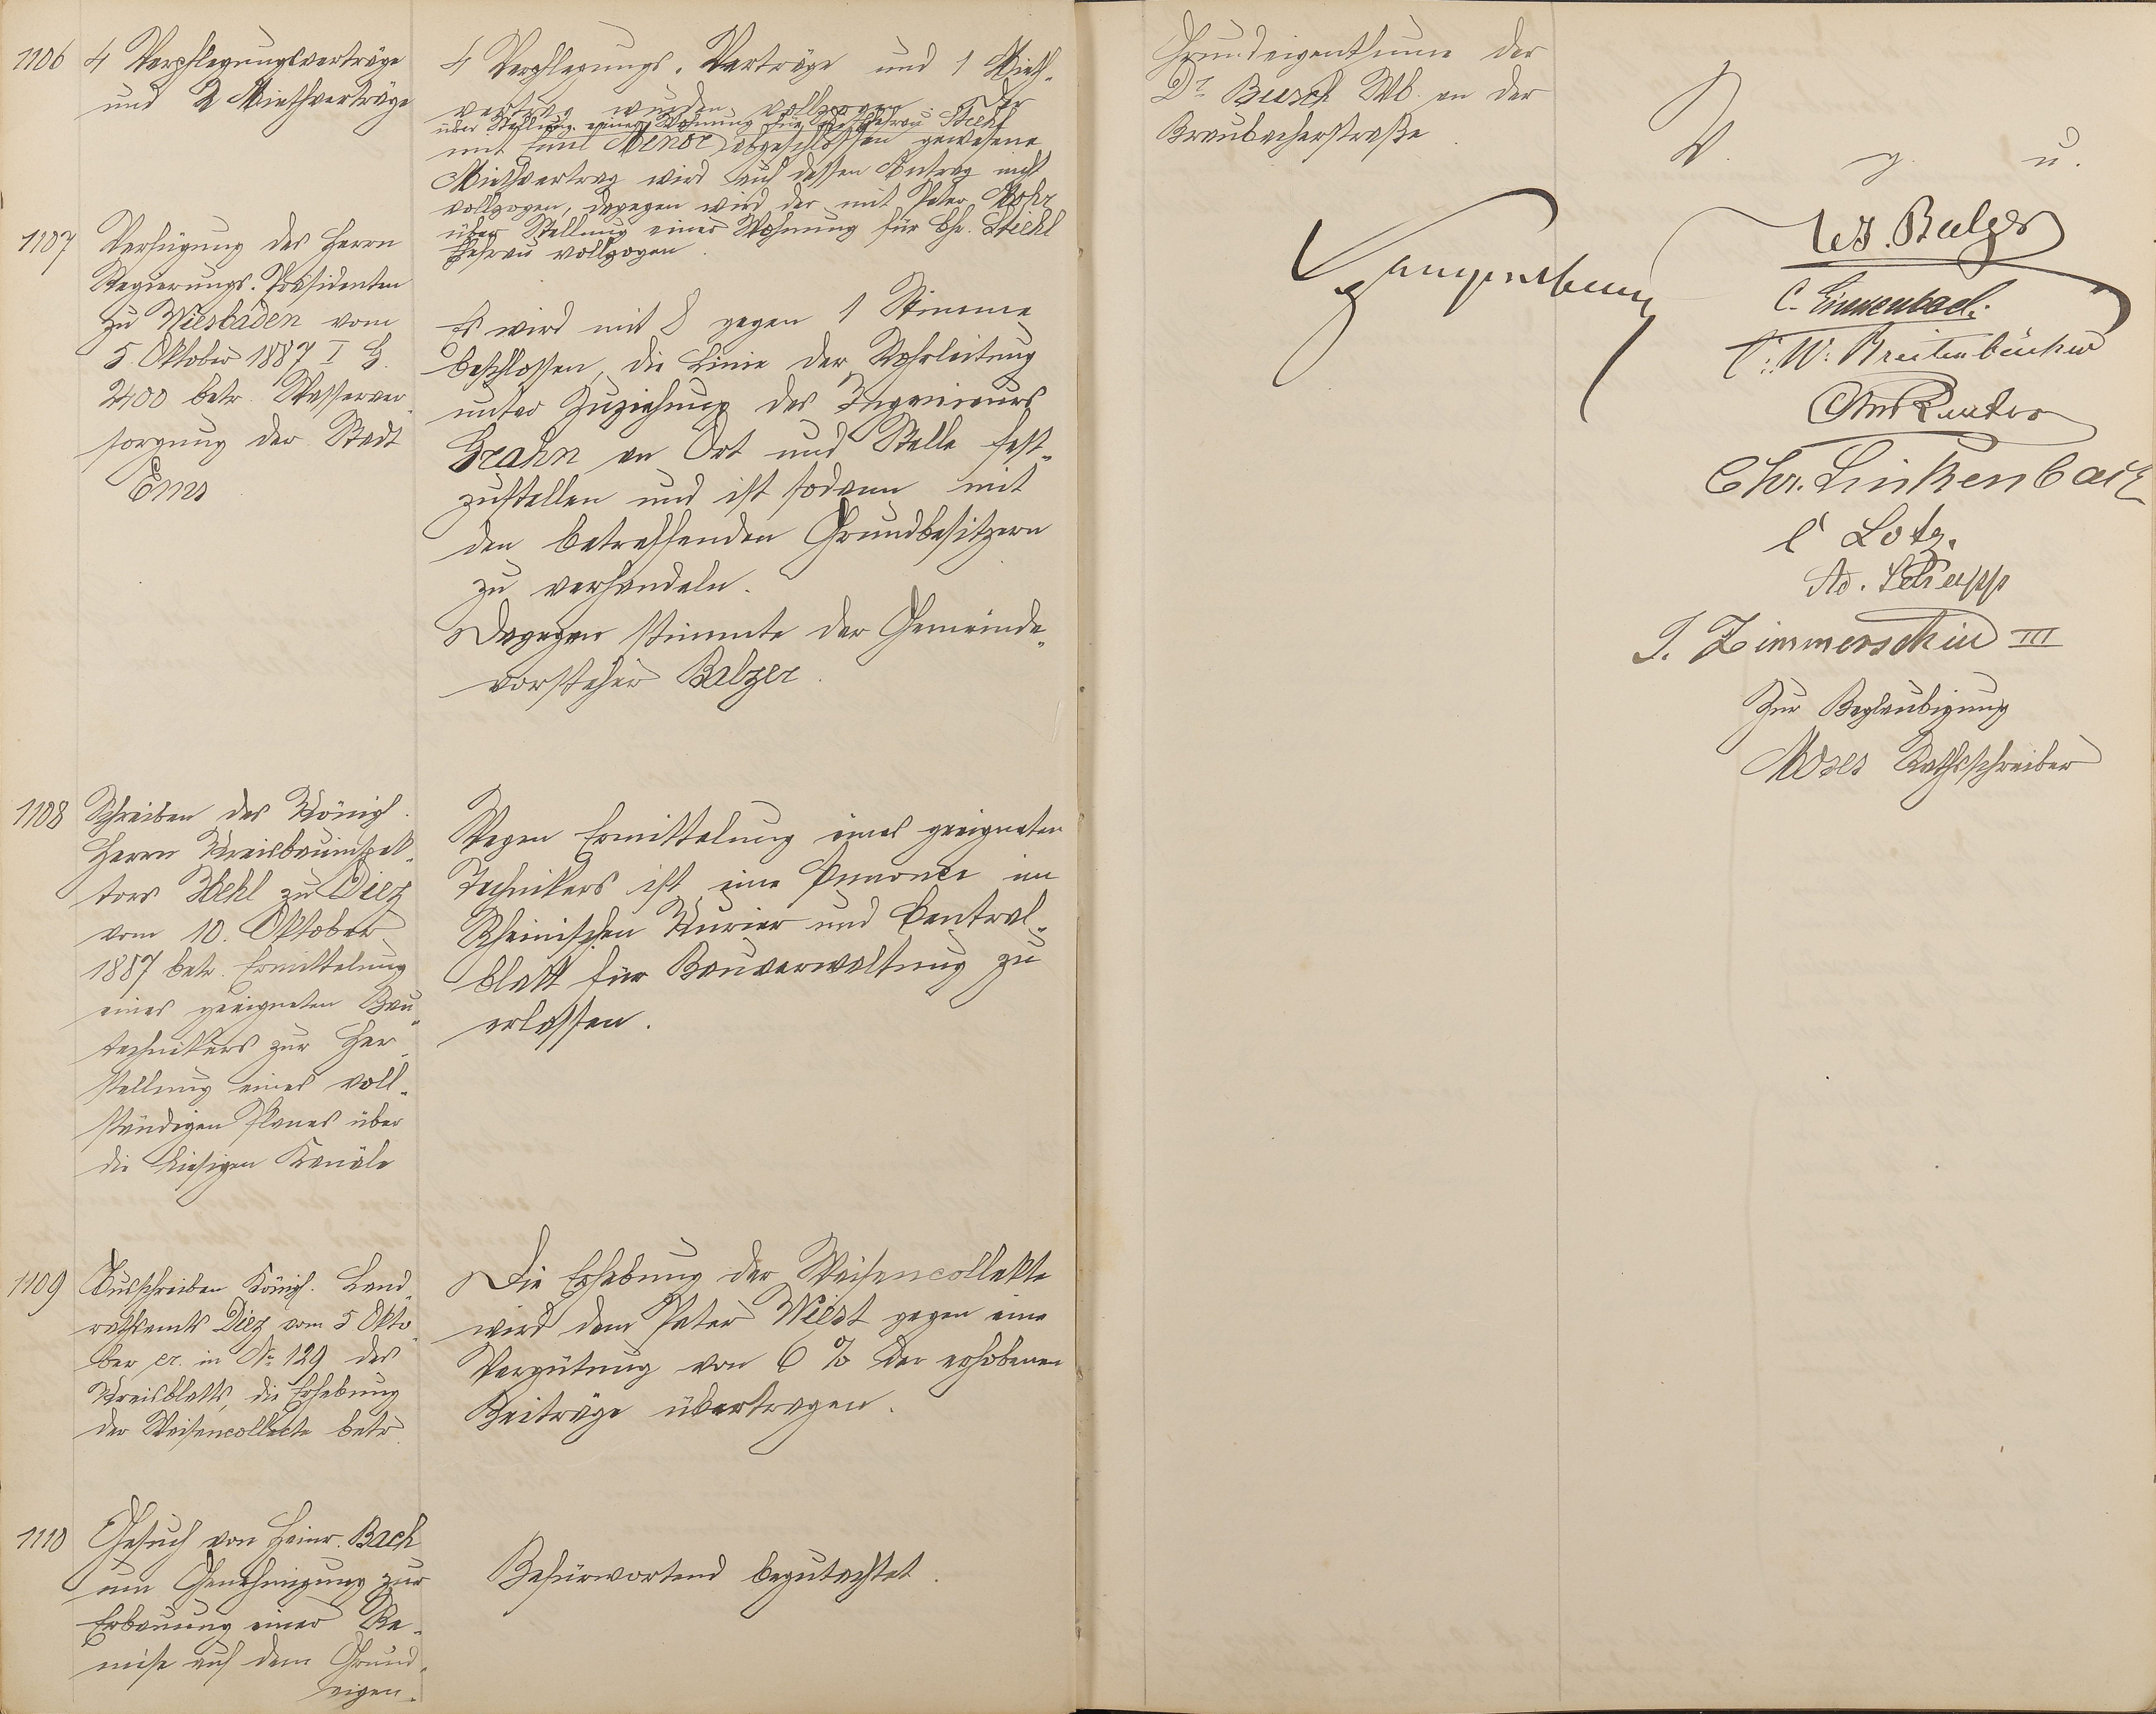 1106
4 Verpflegungsverträge
und 2 Miethverträge
4 Verpflegungs-Verträge und 1 Mieth-
vertrag wurden vollzogen. Der
über Stellung einer Wohnung für Ehefrau Stiehl
mit Emil Menor abgeschlossen gewesene
Miethvertrag wird auf dessen Antrag nicht
vollzogen, dagegen wird der mit Peter Mohr
über Stellung einer Wohnung für Chr. Stiehl
Ehefrau vollzogen.
1107
Verfügung des Herrn
Regierungs-Präsidenten
zu Wiesbaden vom
5. Oktober 1887 I G.
2400 betr. Wasserver-
sorgung der Stadt
Ems
Es wird mit 8 gegen 1 Stimme
beschlossen, die Linie der Rohrleitung
unter Zuziehung des Ingenieurs
Grahn an Ort und Stelle fest-
zustellen und ist sodann mit
den betreffenden Grundbesitzern
zu verhandeln.
Dagegen stimmte der Gemeinde-
vorsteher Balzer.
1108
Schreiben des Königl.
Herrn Kreisbauinspek-
tors Hehl zu Diez
vom 10. Oktober
1887 betr. Ermittelung
eines geeigneten Bau-
technikers zur Her-
stellung eines voll-
ständigen Planes über
die hiesigen Kanäle
Wegen Ermittelung eines geeigneten
Technikers ist eine Annonce im
Rheinischen Kurier und Central-
blatt für Bauverwaltung zu
erlassen.
1109
Ausschreiben Königl. Land-
rathsamts Diez vom 5 Okto-
ber cr. in No 129 des
Kreisblatts, die Erhebung
der Waisencollecte betr.
Die Erhebung der Waisencollekte
wird dem Peter Wiest gegen eine
Vergütung von 6 % der erhobenen
Beiträge übertragen.
1110
Gesuch von Heinr. Bach
um Genehmigung zur
Erbauung einer Re-
mise auf dem Grund-
eigen-
Befürwortend begutachtet.
Grundeigenthume der
Dr Busch Wb. an der
Braubacherstraße
V. g. u.
Spangenberg
W. Balzer
C. Linkenbach.
C. W. Breitenbücher
Chr. Linkenbach
C Lotz.
Ad. Schupp
J. Zimmerschied III
Zur Beglaubigung
Moses Rathsschreiber